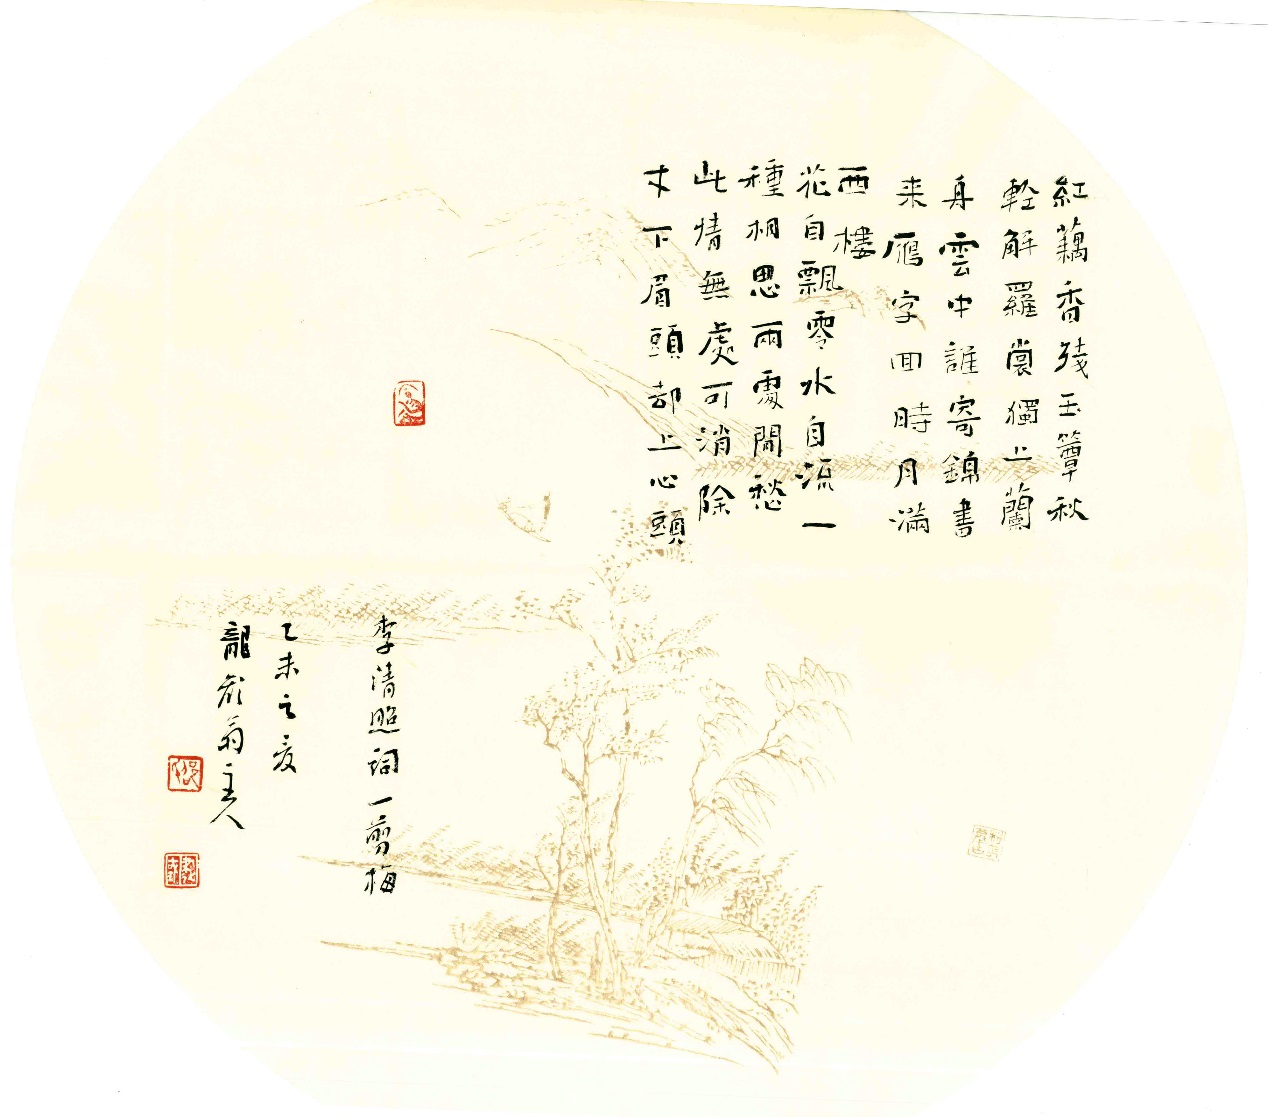 紅藕香殘玉簟秋
輕解羅裳獨上蘭
舟雲中誰寄錦書
来雁字回時月滿
西樓
花自飄零水自流一
種相思兩處閒愁
此情無處可消除
才下眉頭却上心頭
李清照詞一剪梅
乙未之夏
龍翁主人